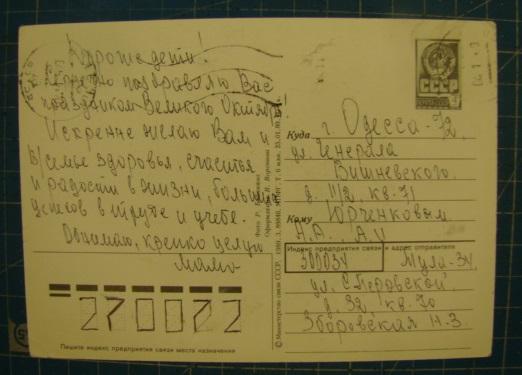 Дорогие дети!
Сердечно поздравляю Вас
праздником Великого Октября!
Искренне желаю Вам и
семье здоровья, счастья
и радости в жизни, больших
успехов в труде и учебе.
Обнимаю, крепко целую
Мама
СССР
Куда г. Одесса-72,
ул. Генерала
Вишневского
д. 11/2, кв. 71
Кому Юрченковым
Н.А. А.И
Индекс предприятия связи и адрес отправителя
300034 Тула-34
ул. С. Перовской
д. 32, кв. 70
Зборовская Н.З.
270072
Пишите индекс предприятия связи места назначения
© Министерство связи СССР.